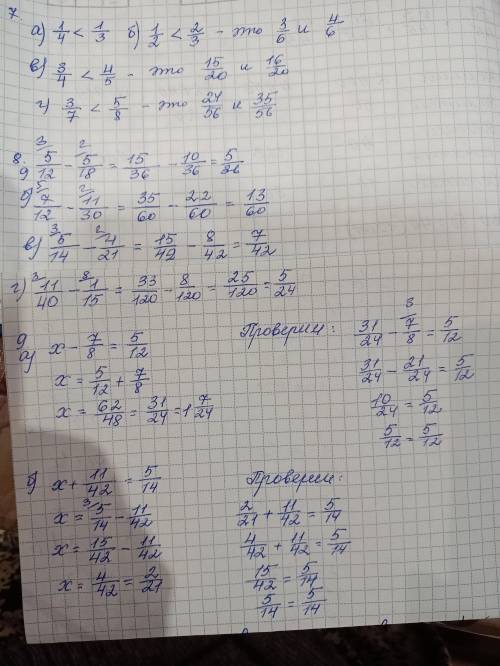 7.
а) 1/4 < 1/3 б) 1/2 < 2/3 - это 3/6 и 4/6
в) 3/4 < 4/5 - это 15/20 и 16/20
г) 3/7 < 5/8 - это 24/56 и 35/56
8.
а) 3/ 5/12 - 2/ 5/18 = 15/36 - 10/36 = 5/36
б) 5/ 7/12 - 2/ 11/30 = 35/60 - 22/60 = 13/60
в) 3/ 5/14 - 2/ 4/21 = 15/42 - 8/42 = 7/42
г) 3/ 11/40 - 8/ 1/15 = 33/120 - 8/120 = 25/120 = 5/24
9
а) x - 7/8 = 5/12
x = 5/12 + 7/8
x = 62/48 = 31/24 = 1 7/24
Проверим: 31/24 - 3/ 7/8 = 5/12
31/24 - 21/24 = 5/12
10/24 = 5/12
5/12 = 5/12
б) x + 11/42 = 5/14
x = 3/ 5/14 - 11/42
x = 15/42 - 11/42
x = 4/42 = 2/21
Проверим:
2/21 + 11/42 = 5/14
4/42 + 11/42 = 5/14
15/42 = 5/14
5/14 = 5/14